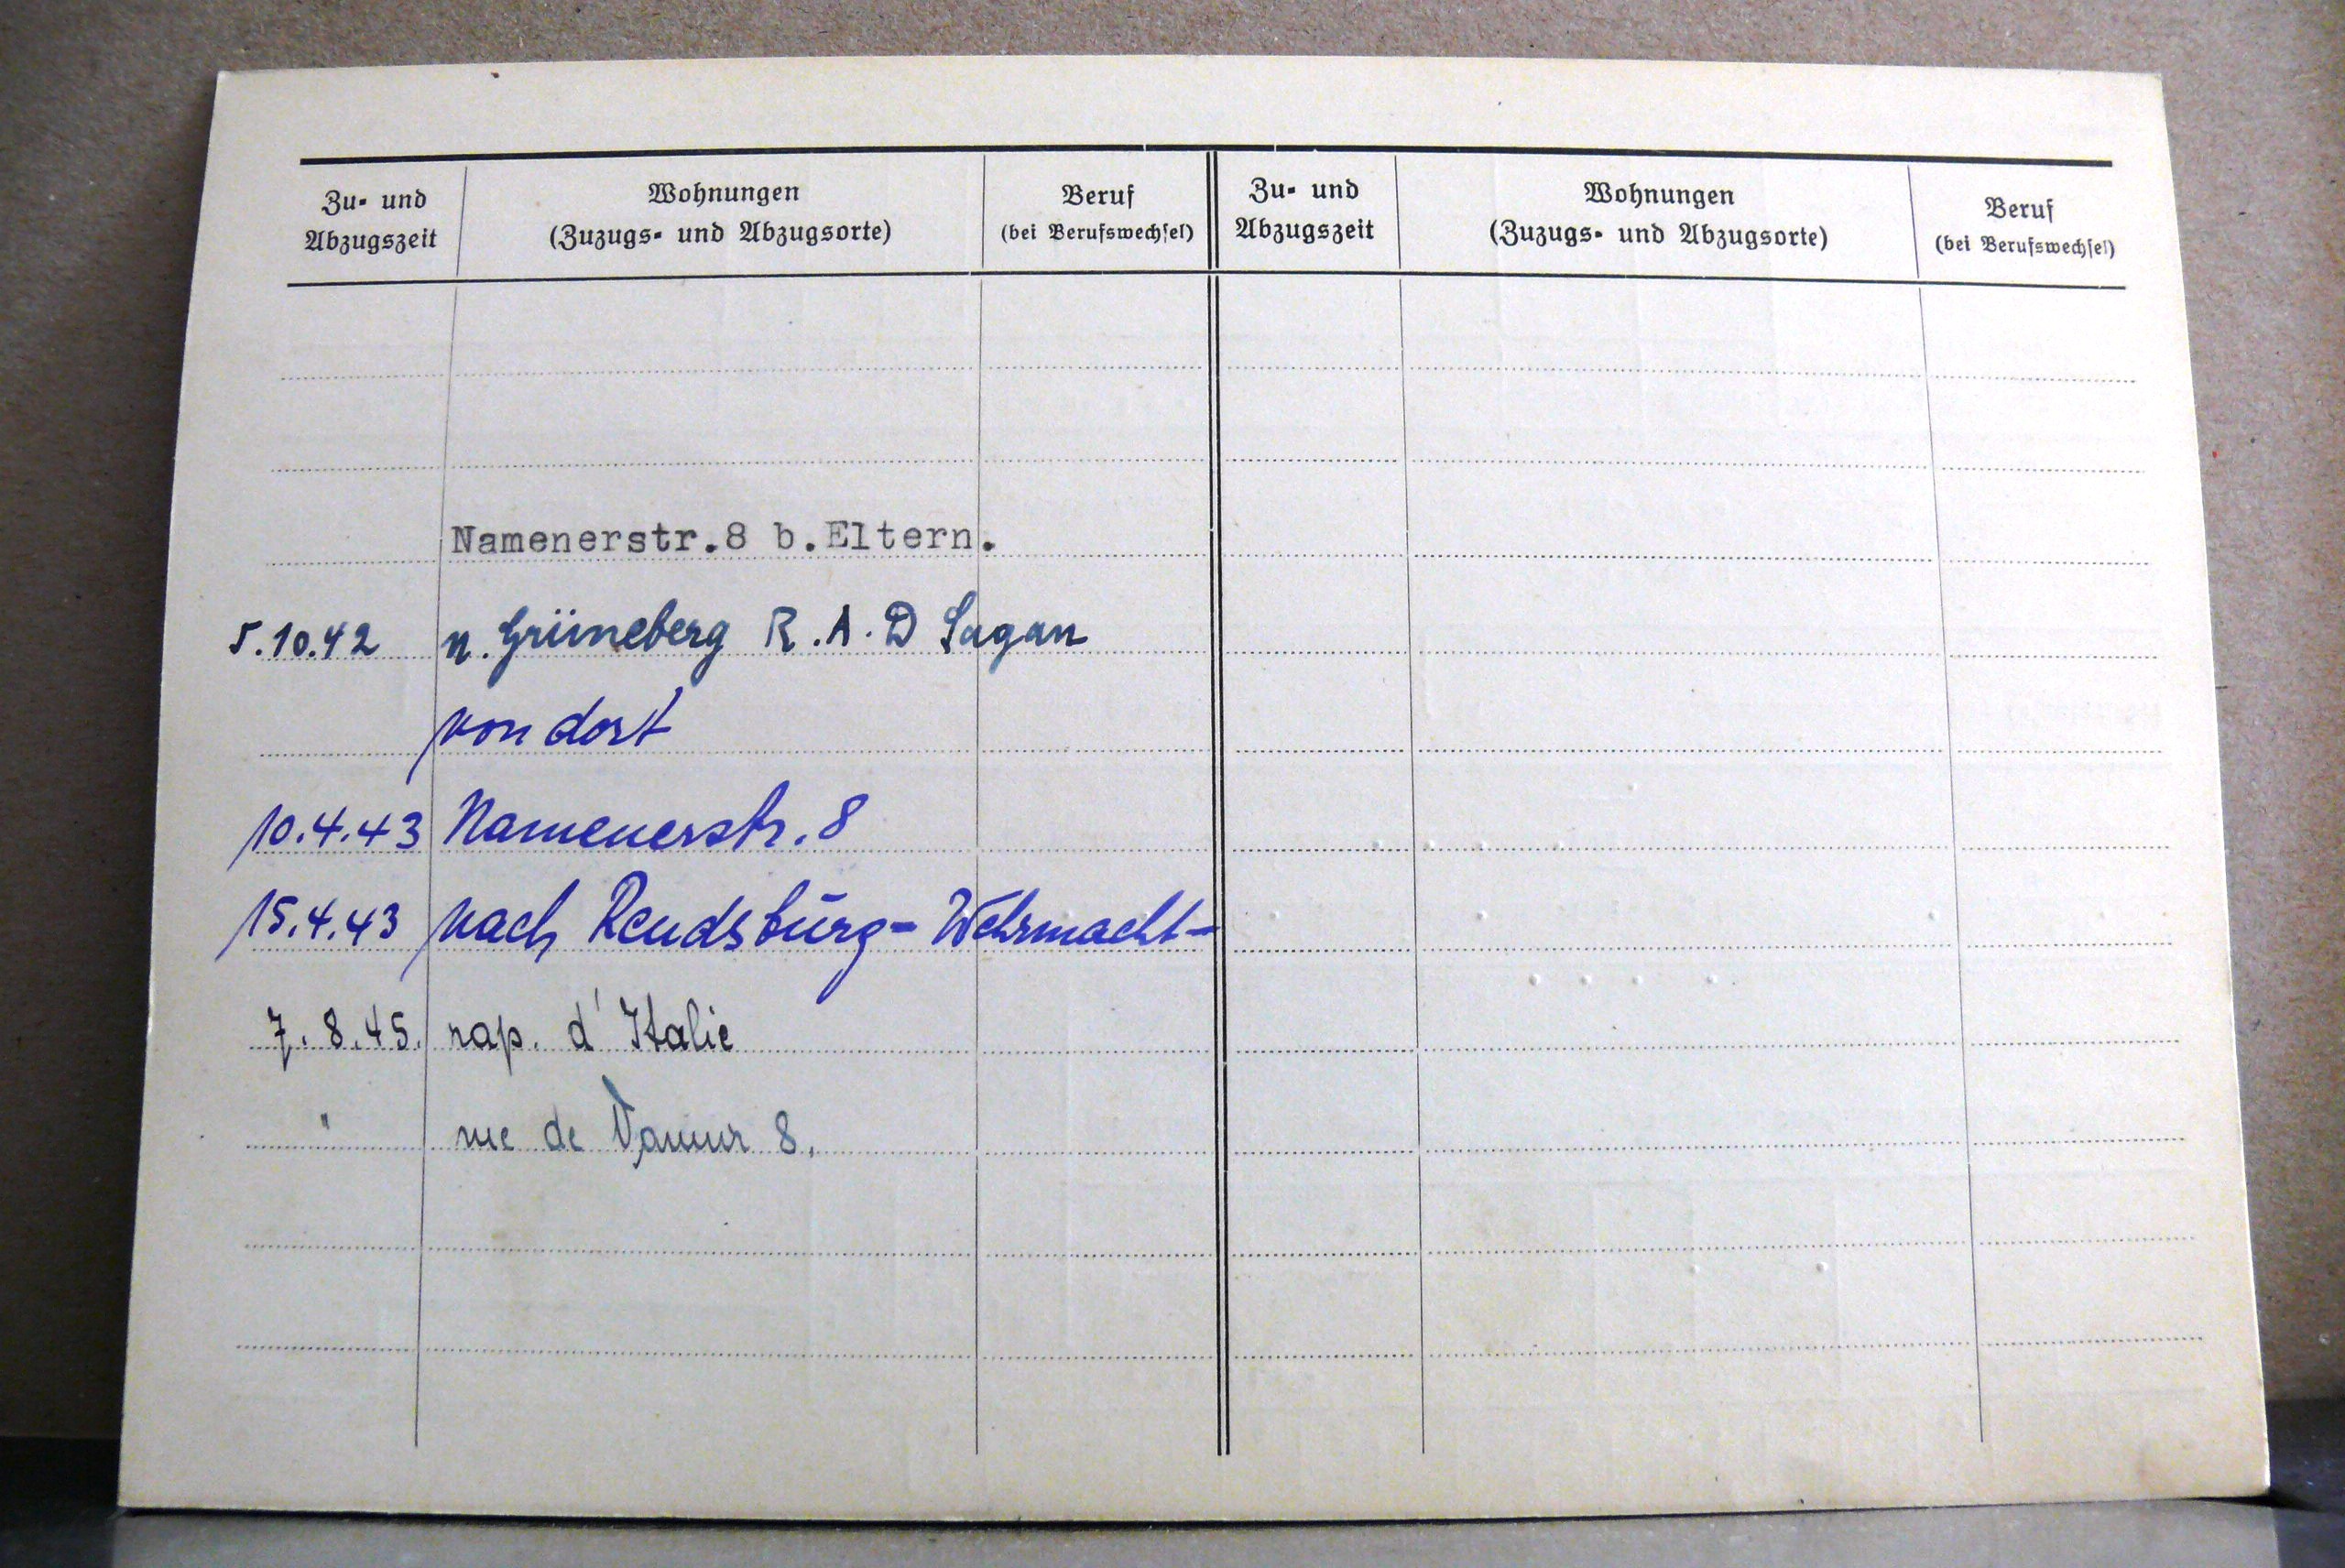 Zu- und
Abzugszeit
Wohnungen
(Zuzugs- und Abzugsorte)
Beruf
(bei Berufswechsel)
Zu- und
Abzugszeit
Wohnungen
(Zuzugs- und Abzugsorte)
Beruf
(bei Berufswechsel)
Namenerstr.8 b.Eltern.
5.10.42 n. Grüneberg R.A.D Sagan
von dort
10.4.43 Namenerstr. 8
15.4.43 nach Rendsburg - Wehrmacht -
7.8.45. rap. d'Italie
" rue de Namur 8.